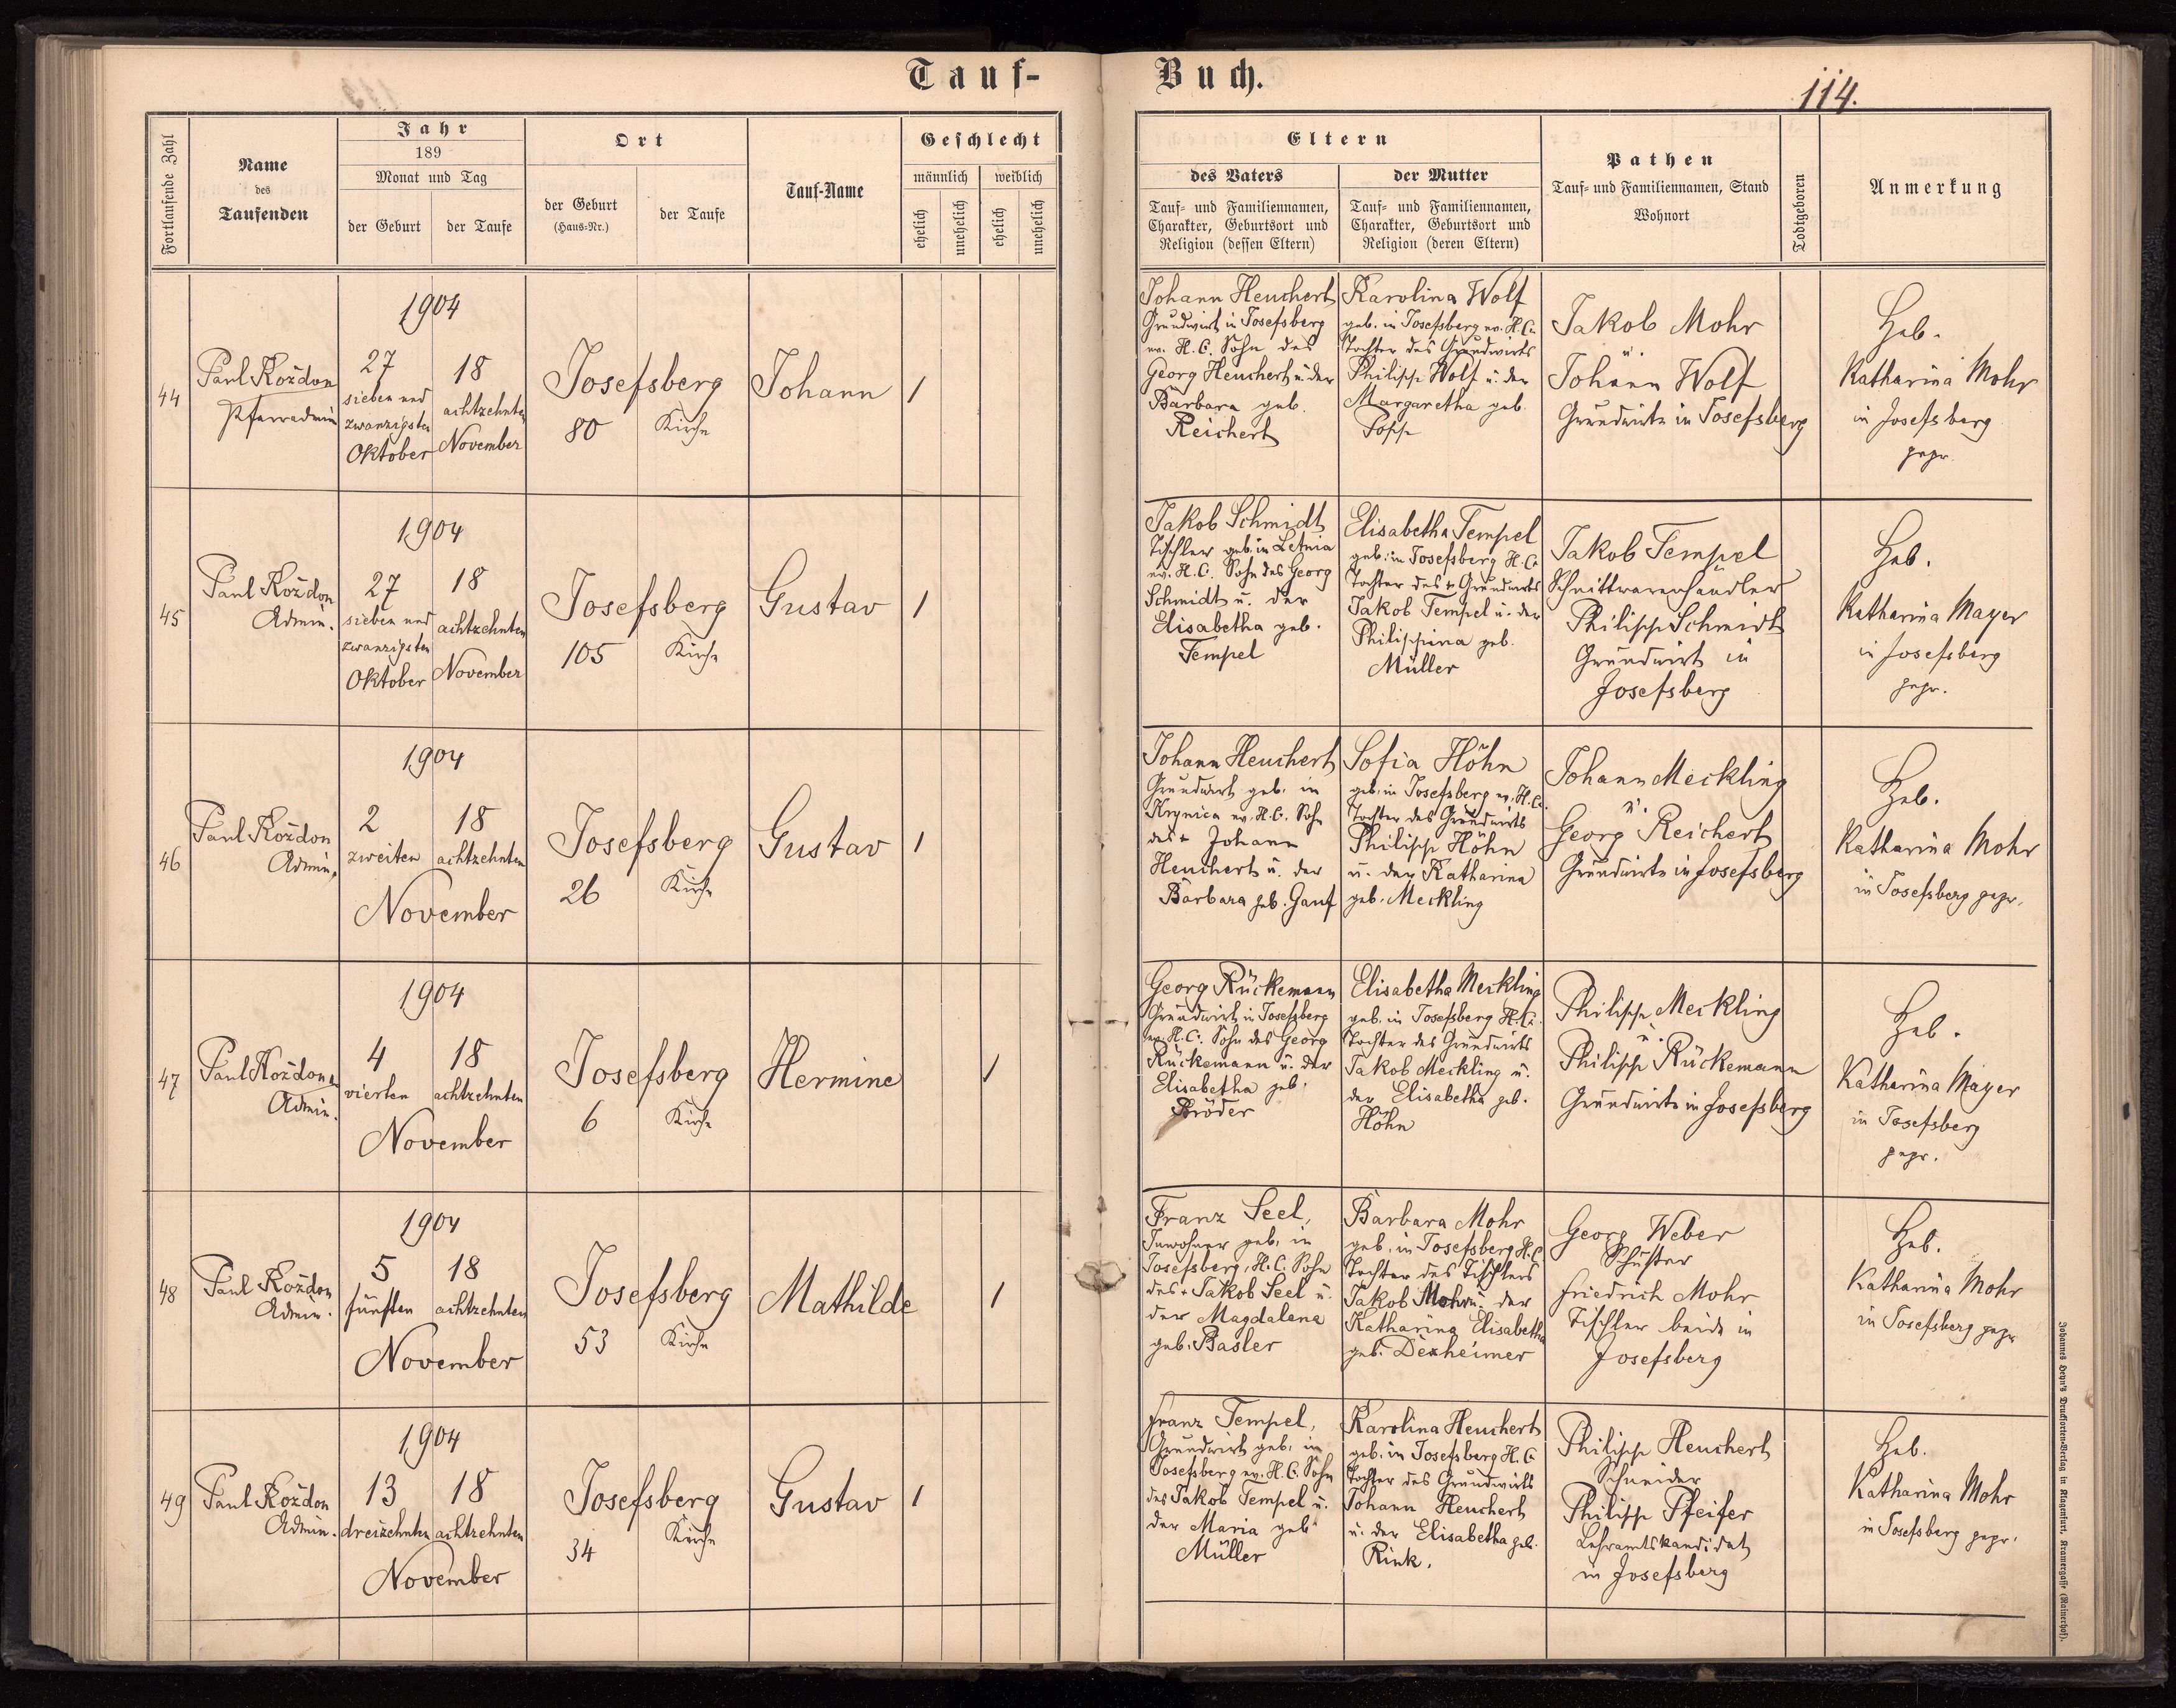 Tauf-Buch.
114.
Fortlaufende Zahl
Name
des
Taufenden
Jahr
189
Monat und Tag
der Geburt
der Taufe
Ort
der Geburt
(Haus-Nr.)
der Taufe
Tauf-Name
Geschlecht
männlich
weiblich
ehelich
unehelich
ehelich
unehelich
Eltern
des Vaters
Tauf- und Familiennamen,
Charakter, Geburtsort und
Religion (dessen Eltern)
der Mutter
Tauf- und Familiennamen,
Charakter, Geburtsort und
Religion (deren Eltern)
Pathen
Tauf- und Familiennamen, Stand
Wohnort
Todtgeboren
Anmerkung
44
Paul Koždon
Pfarradmin
1904
27
sieben und
zwanzigsten
Oktober
18
achtzehnten
November
Josefsberg
80
Kirche
Johann
1
Johann Heuchert
Grundwirt in Josefsberg
ev. H.C. Sohn des
Georg Heuchert u. der
Barbara geb.
Reichert
Karolina Wolf
geb. in Josefsberg ev. H.C.
Tochter des Grundwirts
Philipp Wolf u. der
Margaretha geb.
Popp
Jakob Mohr
u.
Johann Wolf
Grundwirte in Josefsberg
Heb.
Katharina Mohr
in Josefsberg
gepr.
45
Paul Koždon
Admin.
1904
27
sieben und
zwanzigsten
Oktober
18
achtzehnten
November
Josefsberg
105
Kirche
Gustav
1
Jakob Schmidt
Tischler geb. in Letnia
ev. H.C. Sohn des Georg
Schmidt u. der
Elisabetha geb.
Tempel
Elisabetha Tempel
geb. in Josefsberg H.C.
Tochter des + Grundwirts
Jakob Tempel u. der
Philippina geb.
Müller
Jakob Tempel
Schnittwarenhändler
Philipp Schmidt
Grundwirt in
Josefsberg
Heb.
Katharina Mayer
in Josefsberg
gepr.
46
Paul Koždon
Admin.
1904
2
zweiten
18
achtzehnten
November
Josefsberg
26
Kirche
Gustav
1
Johann Heuchert
Grundwirt geb. in
Krynica ev. H.C. Sohn
des + Johann
Heuchert u. der
Barbara geb. Ganf
Sofia Höhn
geb. in Josefsberg ev. H.C.
Tochter des Grundwirts
Philipp Höhn
u. der Katharina
geb. Meckling
Johann Meckling
u.
Georg Reichert
Grundwirte in Josefsberg
Heb.
Katharina Mohr
in Josefsberg gepr.
47
Paul Koždon
Admin.
1904
4
vierten
18
achtzehnten
November
Josefsberg
6
Kirche
Hermine
1
Georg Rückemann
Grundwirt in Josefsberg
ev. H.C. Sohn des Georg
Rückemann u. der
Elisabetha geb.
Bröder
Elisabetha Meckling
geb. in Josefsberg H.C.
Tochter des Grundwirts
Jakob Meckling u.
der Elisabetha geb.
Höhn
Philipp Meckling
u.
Philipp Rückemann
Grundwirte in Josefsberg
Heb.
Katharina Mayer
in Josefsberg
gepr.
48
Paul Koždon
Admin.
1904
5
fünften
18
achtzehnten
November
Josefsberg
53
Kirche
Mathilde
1
Franz Seel,
Inwohner geb. in
Josefsberg, H.C. Sohn
des + Jakob Seel u.
der Magdalena
geb. Basler
Barbara Mohr
geb. in Josefsberg H.C.
Tochter des Tischlers
Jakob Mohr u. der
Katharina Elisabetha
geb. Dexheimer
Georg Weber
Schuster
Friedrich Mohr
Tischler beide in
Josefsberg
Heb.
Katharina Mohr
in Josefsberg gepr
49
Paul Koždon
Admin.
1904
13
dreizehnten
18
achtzehnten
November
Josefsberg
34
Kirche
Gustav
1
Franz Tempel,
Grundwirt geb. in
Josefsberg ev. H.C. Sohn
des Jakob Tempel u.
der Maria geb.
Müller
Karolina Heuchert
geb. in Josefsberg H.C.
Tochter des Grundwirts
Johann Heuchert
u. der Elisabetha geb.
Rink.
Philipp Heuchert
Schneider
Philipp Pfeifer
Lehramtskandidat
in Josefsberg
Heb.
Katharina Mohr
in Josefsberg gepr.
Johannes Heyn's Drucksorten-Verlag in Klagenfurt, Kramergasse (Rainerhof).